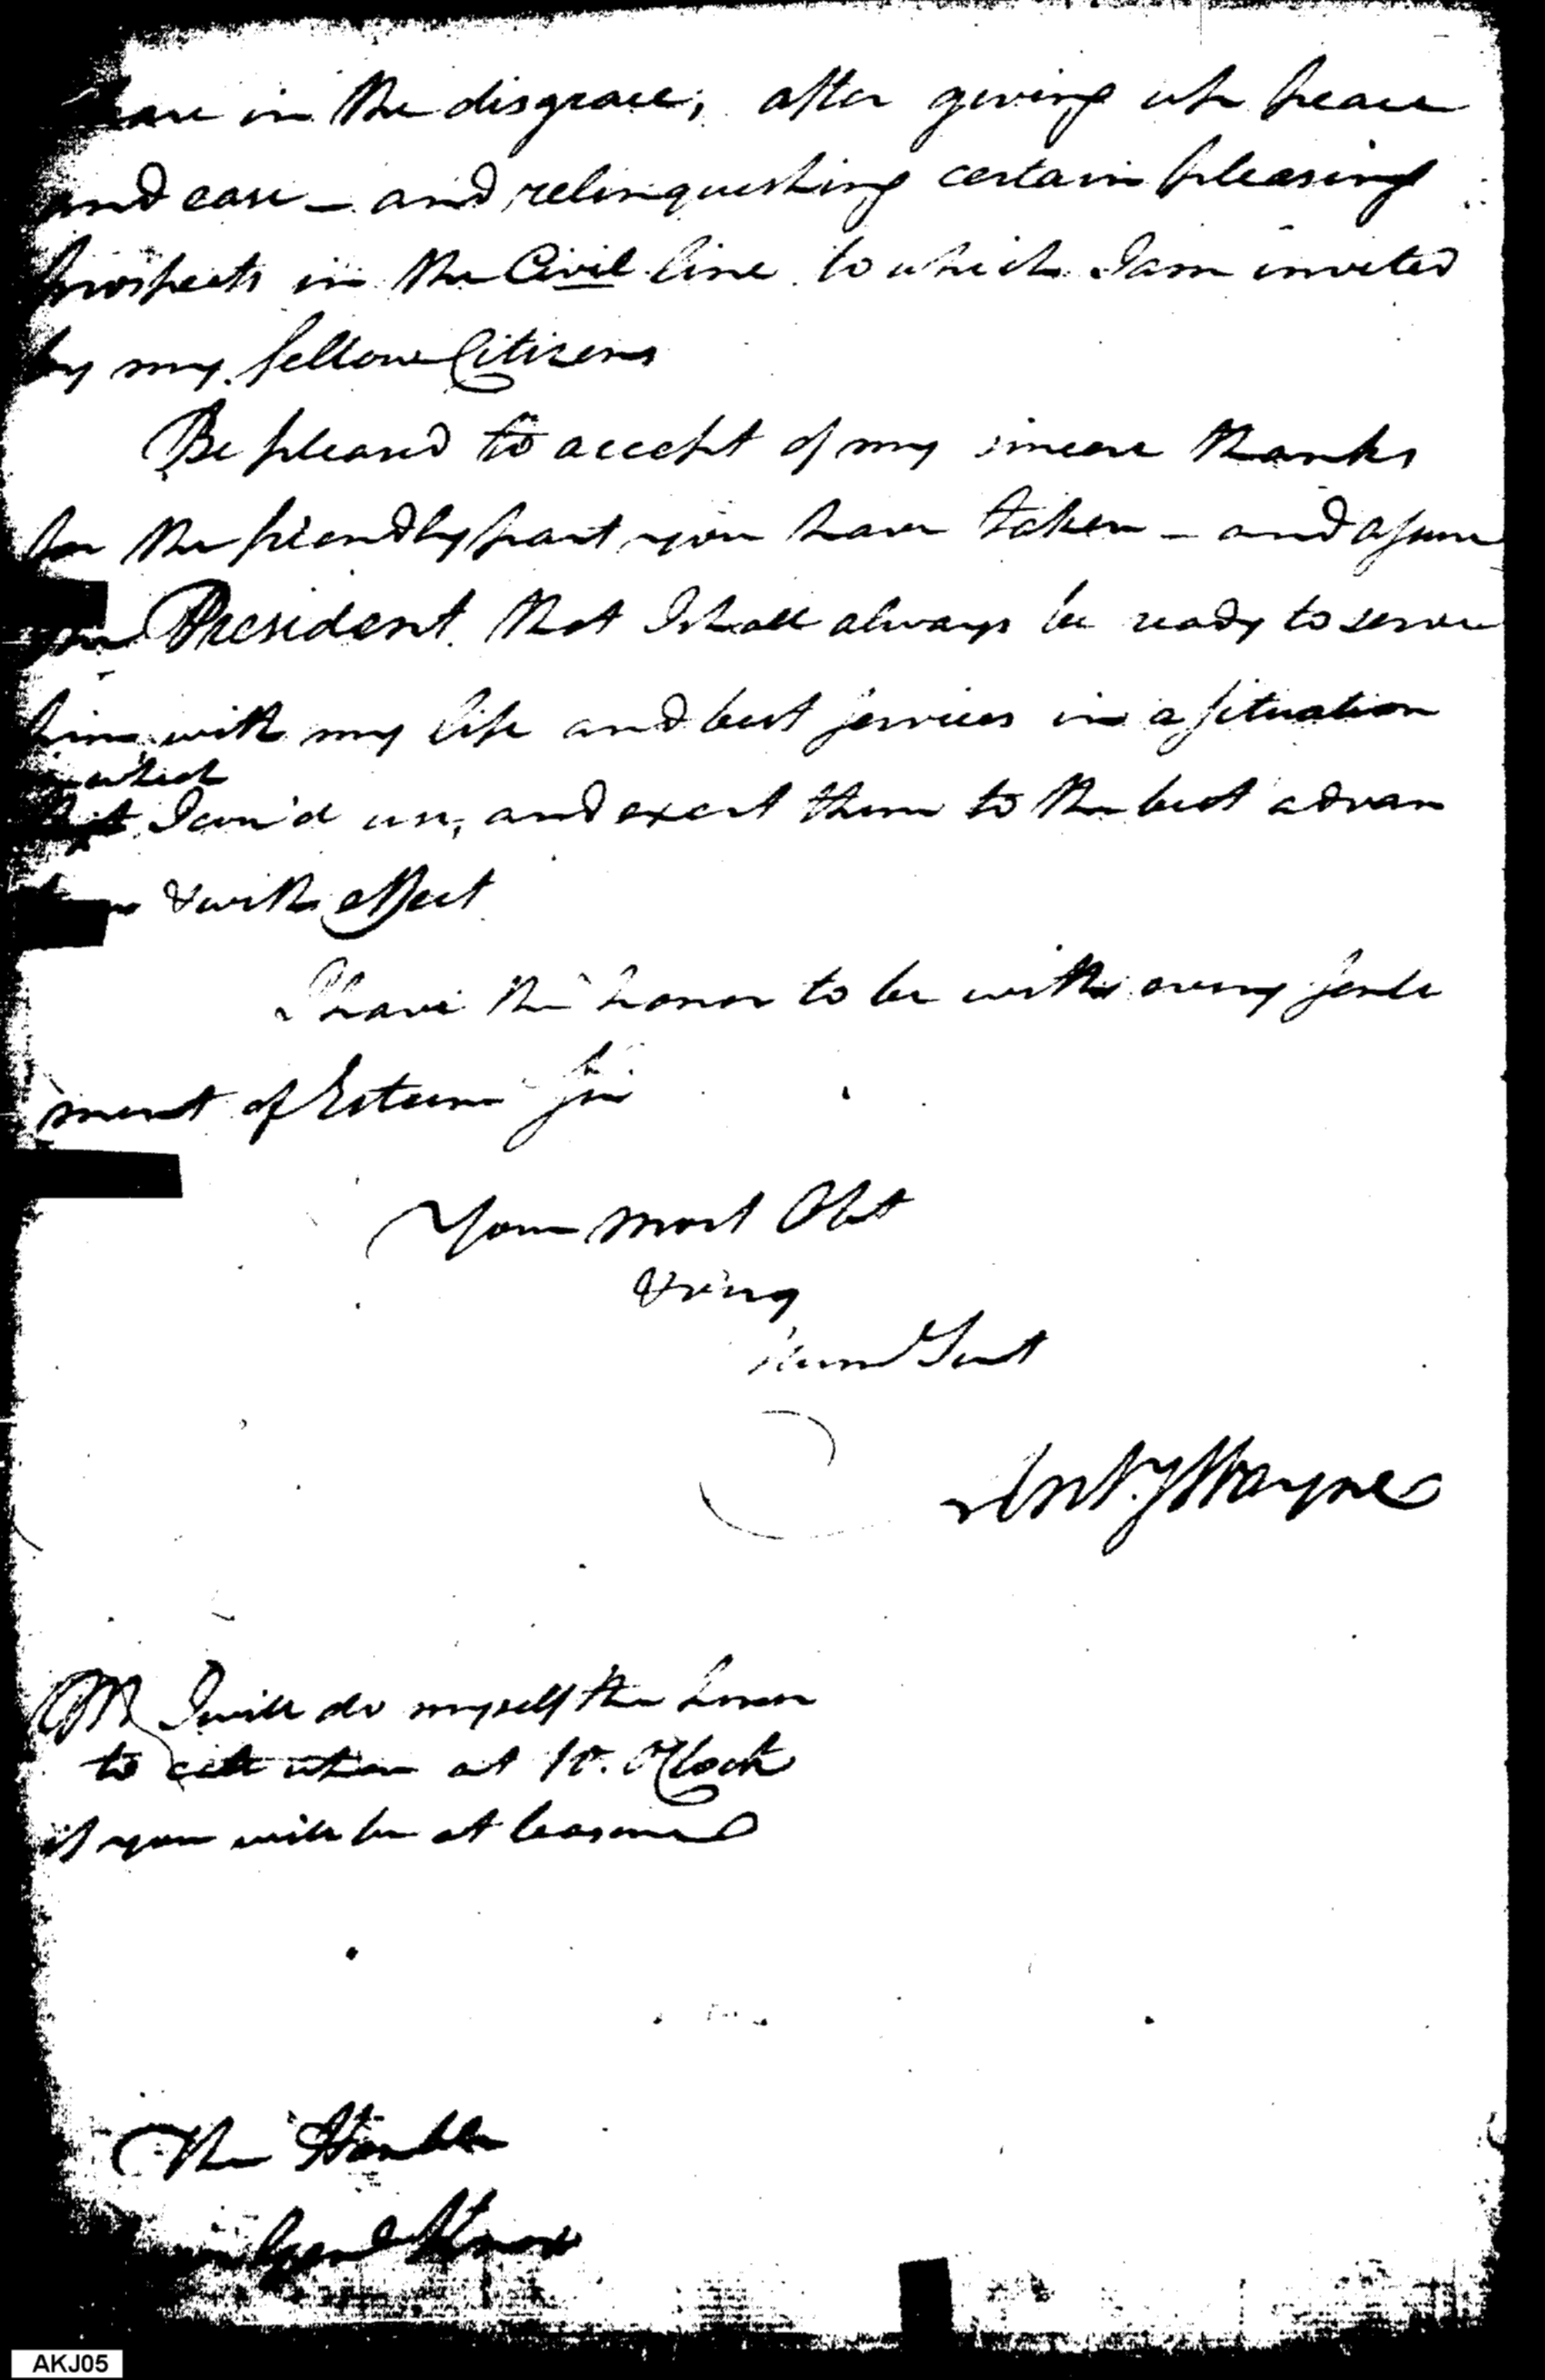 share in the disgrace, after giving up peace
and ease — and relinquishing certain pleasing
prospects in the Civil line to which I am invited
by my fellow Citizens
Be pleased to accept of my sincere thanks
for the friendly part you have taken — and assure
our President that I shall always be ready to serve
him with my life and best services in a situation
which
that I cou'd use, and exert them to the best advan
& with effect
I have the honor to be with every senti
ment of Esteem Sir
Your most Obt
& very
Hum Sert
Anty Wayne
I will do myself the honor
to call upon at 10. OClock
if you will be at leasure
The Honble
Genl Knox
AKJ05